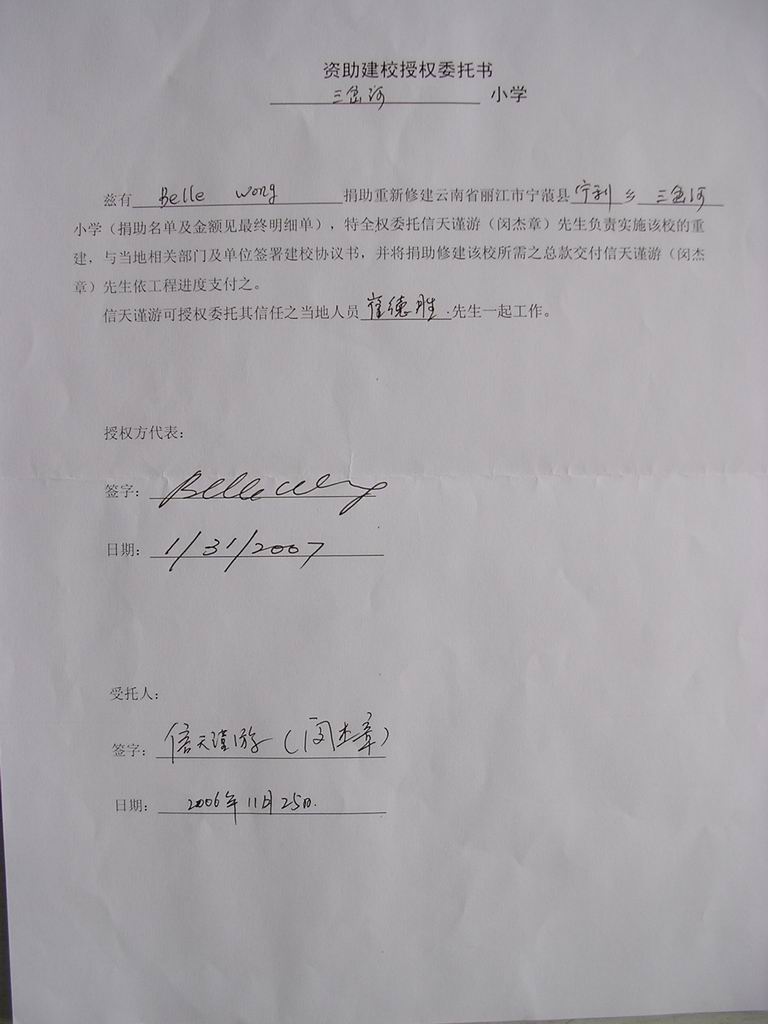 资助建校授权委托书
三岔河 小学
兹有 Belle Wong 捐助重新修建云南省丽江市宁蒗县 宁利 乡 三岔河
小学（捐助名单及金额见最终明细单），特全权委托信天谨游（闵杰章）先生负责实施该校的重
建，与当地相关部门及单位签署建校协议书，并将捐助修建该校所需之总款交付信天谨游（闵杰
章）先生依工程进度支付之。
信天谨游可授权委托其信任之当地人员 崔德胜 先生一起工作。
授权方代表：
签字：Belle Wong
日期：1/31/2007
受托人：
签字：信天谨游（闵杰章）
日期：2006年11月25日.